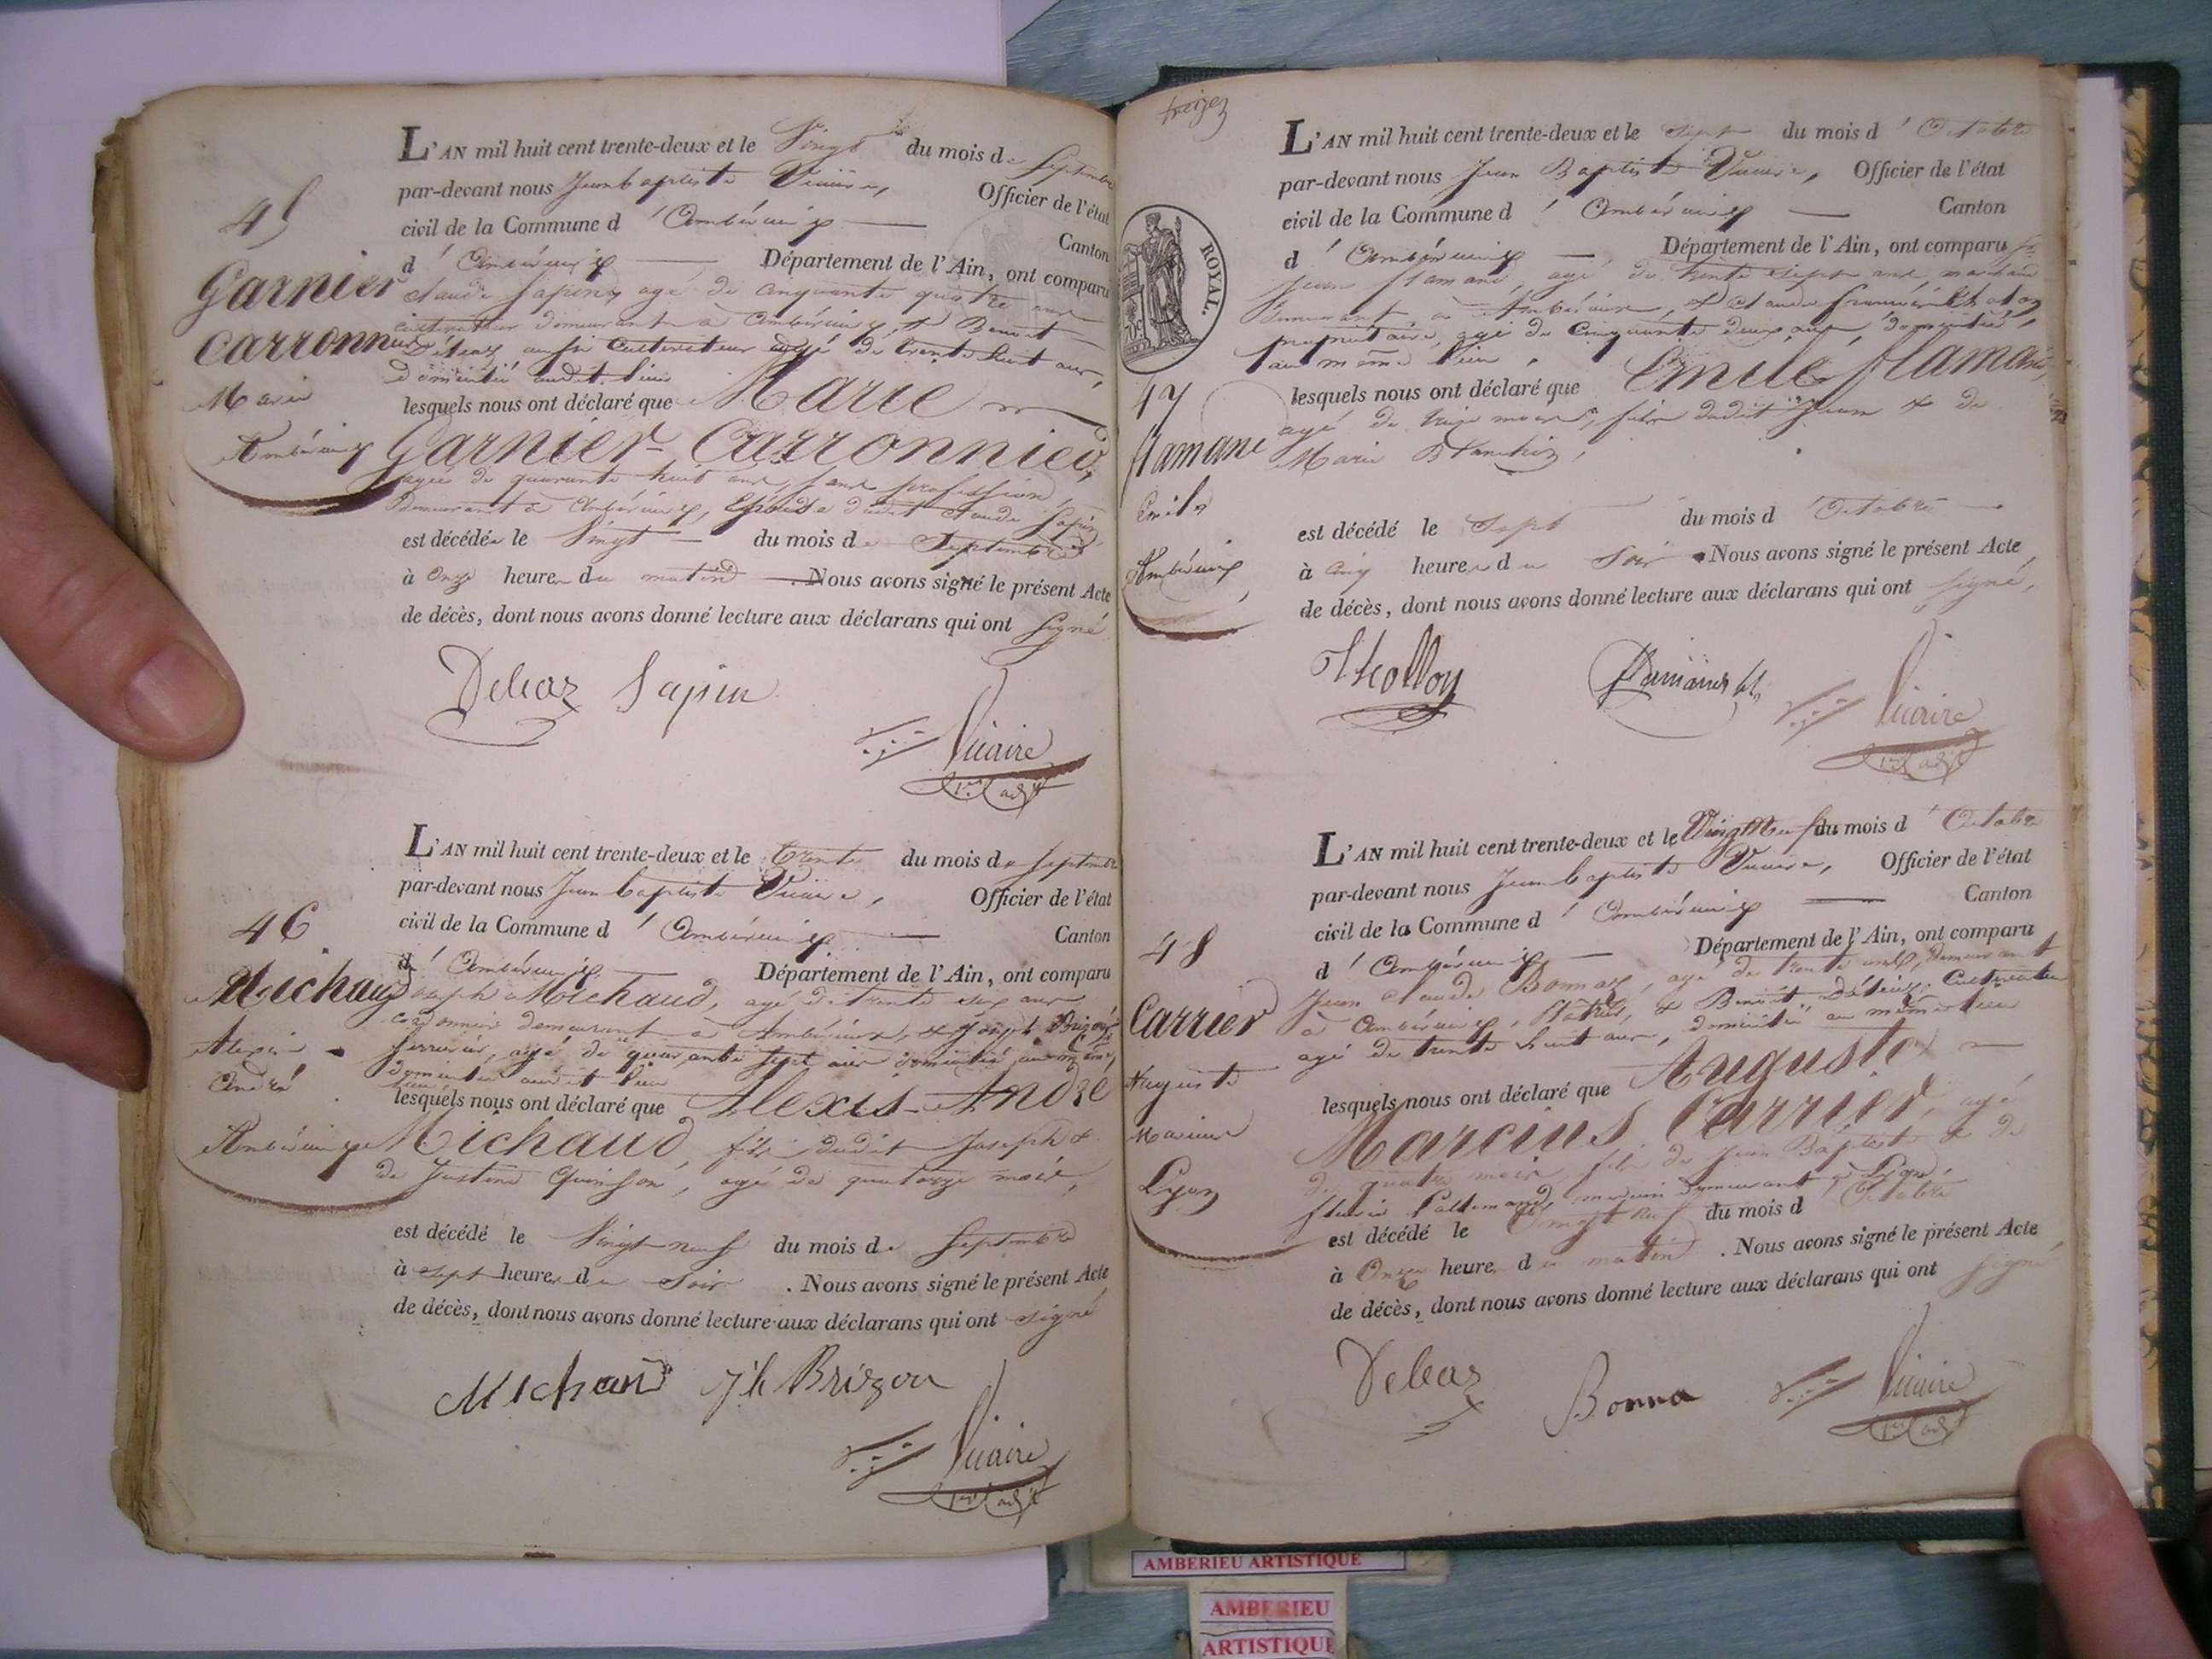 45
Garnier
Carronnier
Marie
Ambérieux
L'AN mil huit cent trente-deux et le Vingt du mois de Septembre
par-devant nous Jean baptiste Vicaire, Officier de l'état
civil de la Commune d'Ambérieux Canton
d'Ambérieux Département de l'Ain, ont comparu
Claude Sapin, agé de cinquante quatre ans
cultivateur demeurant à Ambérieux, & Benoit
Déléaz aussi Cultivateur agé de trente huit ans,
domicilié audit lieu
lesquels nous ont déclaré que Marie
Garnier-Carronnier,
agée de quarante huit ans, sans profession,
demeurant à Ambérieux, Epouse dudit Claude Sapin
est décédée le Vingt du mois de Septembre
à Onze heure du matin. Nous avons signé le présent Acte
de décès, dont nous avons donné lecture aux déclarans qui ont signé
Deleaz Sapin
Vicaire
1er adjt
46
Michaud
Alexis
André
Ambérieux
L'AN mil huit cent trente-deux et le trente du mois de Septembre
par-devant nous Jean baptiste Vicaire, Officier de l'état
civil de la Commune d'Ambérieux Canton
d'Ambérieux Département de l'Ain, ont comparu
Joseph Michaud, agé de trente six ans
cordonnier demeurant à Ambérieux, & Joseph Brizon
serrurier, agé de quarante sept ans domicilié au même
domicilié audit lieu
lieu
lesquels nous ont déclaré que Alexis-André
Michaud, fils dudit Joseph &
de Justine Quinson, agé de quatorze mois,
est décédé le Vingt neuf du mois de Septembre
à sept heure du soir. Nous avons signé le présent Acte
de décès, dont nous avons donné lecture aux déclarans qui ont signé
Michaud Jh Brizon
Vicaire
1er adjt
treize
ROYAL.
47
flamand
Emile
Ambérieux
L'AN mil huit cent trente-deux et le sept du mois d'Octobre
par-devant nous Jean Baptiste Vicaire, Officier de l'état
civil de la Commune d'Ambérieux Canton
d'Ambérieux Département de l'Ain, ont comparu
Jean flamand, agé de trente sept ans, marchand
demeurant à Ambérieux, et Claude françois
propriétaire, agé de Cinquante deux ans, domicilié
au même lieu,
lesquels nous ont déclaré que Emile flamand,
agé de mois, fils dudit Jean & de
Marie Blanchin,
est décédé le Sept du mois d'Octobre
à Cinq heures du Soir. Nous avons signé le présent Acte
de décès, dont nous avons donné lecture aux déclarans qui ont signé,
Vicaire
1er adjt
48
Carrier
Auguste
Marius
Lyon
L'AN mil huit cent trente-deux et le Vingt Neuf du mois d'Octobre
par-devant nous Jean baptiste Vicaire, Officier de l'état
civil de la Commune d'Ambérieux Canton
d'Ambérieux Département de l'Ain, ont comparu
Jean Claude Bonnaz, agé de trente ans, demeurant
à Ambérieux, Plâtrier, & Benoit Déléaz, Cultivateur
agé de trente huit ans, domicilié au même lieu
lesquels nous ont déclaré que Auguste
Marcius Carrier, agé
de quatre mois, fils de Jean Baptiste & de
Lallemand, demeurant à Lyon,
est décédé le Vingt neuf du mois d'Octobre
à Onze heure du matin. Nous avons signé le présent Acte
de décès, dont nous avons donné lecture aux déclarans qui ont signé
Deleaz Bonna
Vicaire
1er adjt
AMBERIEU ARTISTIQUE
AMBERIEU
ARTISTIQUE